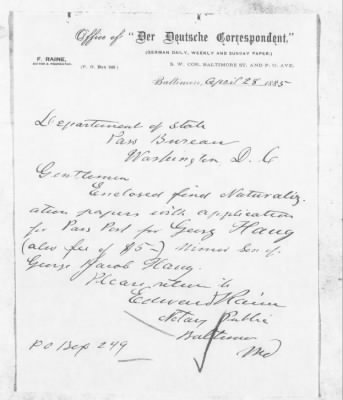 Office of "Der Deutsche Correspondent,"
(GERMAN DAILY, WEEKLY AND SUNDAY PAPER.)
F. RAINE,
EDITOR & PROPRIETOR.
S. W. COR. BALTIMORE ST. AND P. O. AVE.
Baltimore, April 28 1885
Department of State
Pass Bureau
Washington D. C
Gentlemen
Enclosed find Naturaliz-
ation papers with application
for Pass Port for Georg Haug
(also fee of $5-) Minor Son of
George Jacob Haug.
Please return to
Edward Raine
Notary Public
Baltimore
Md
P O Box 249